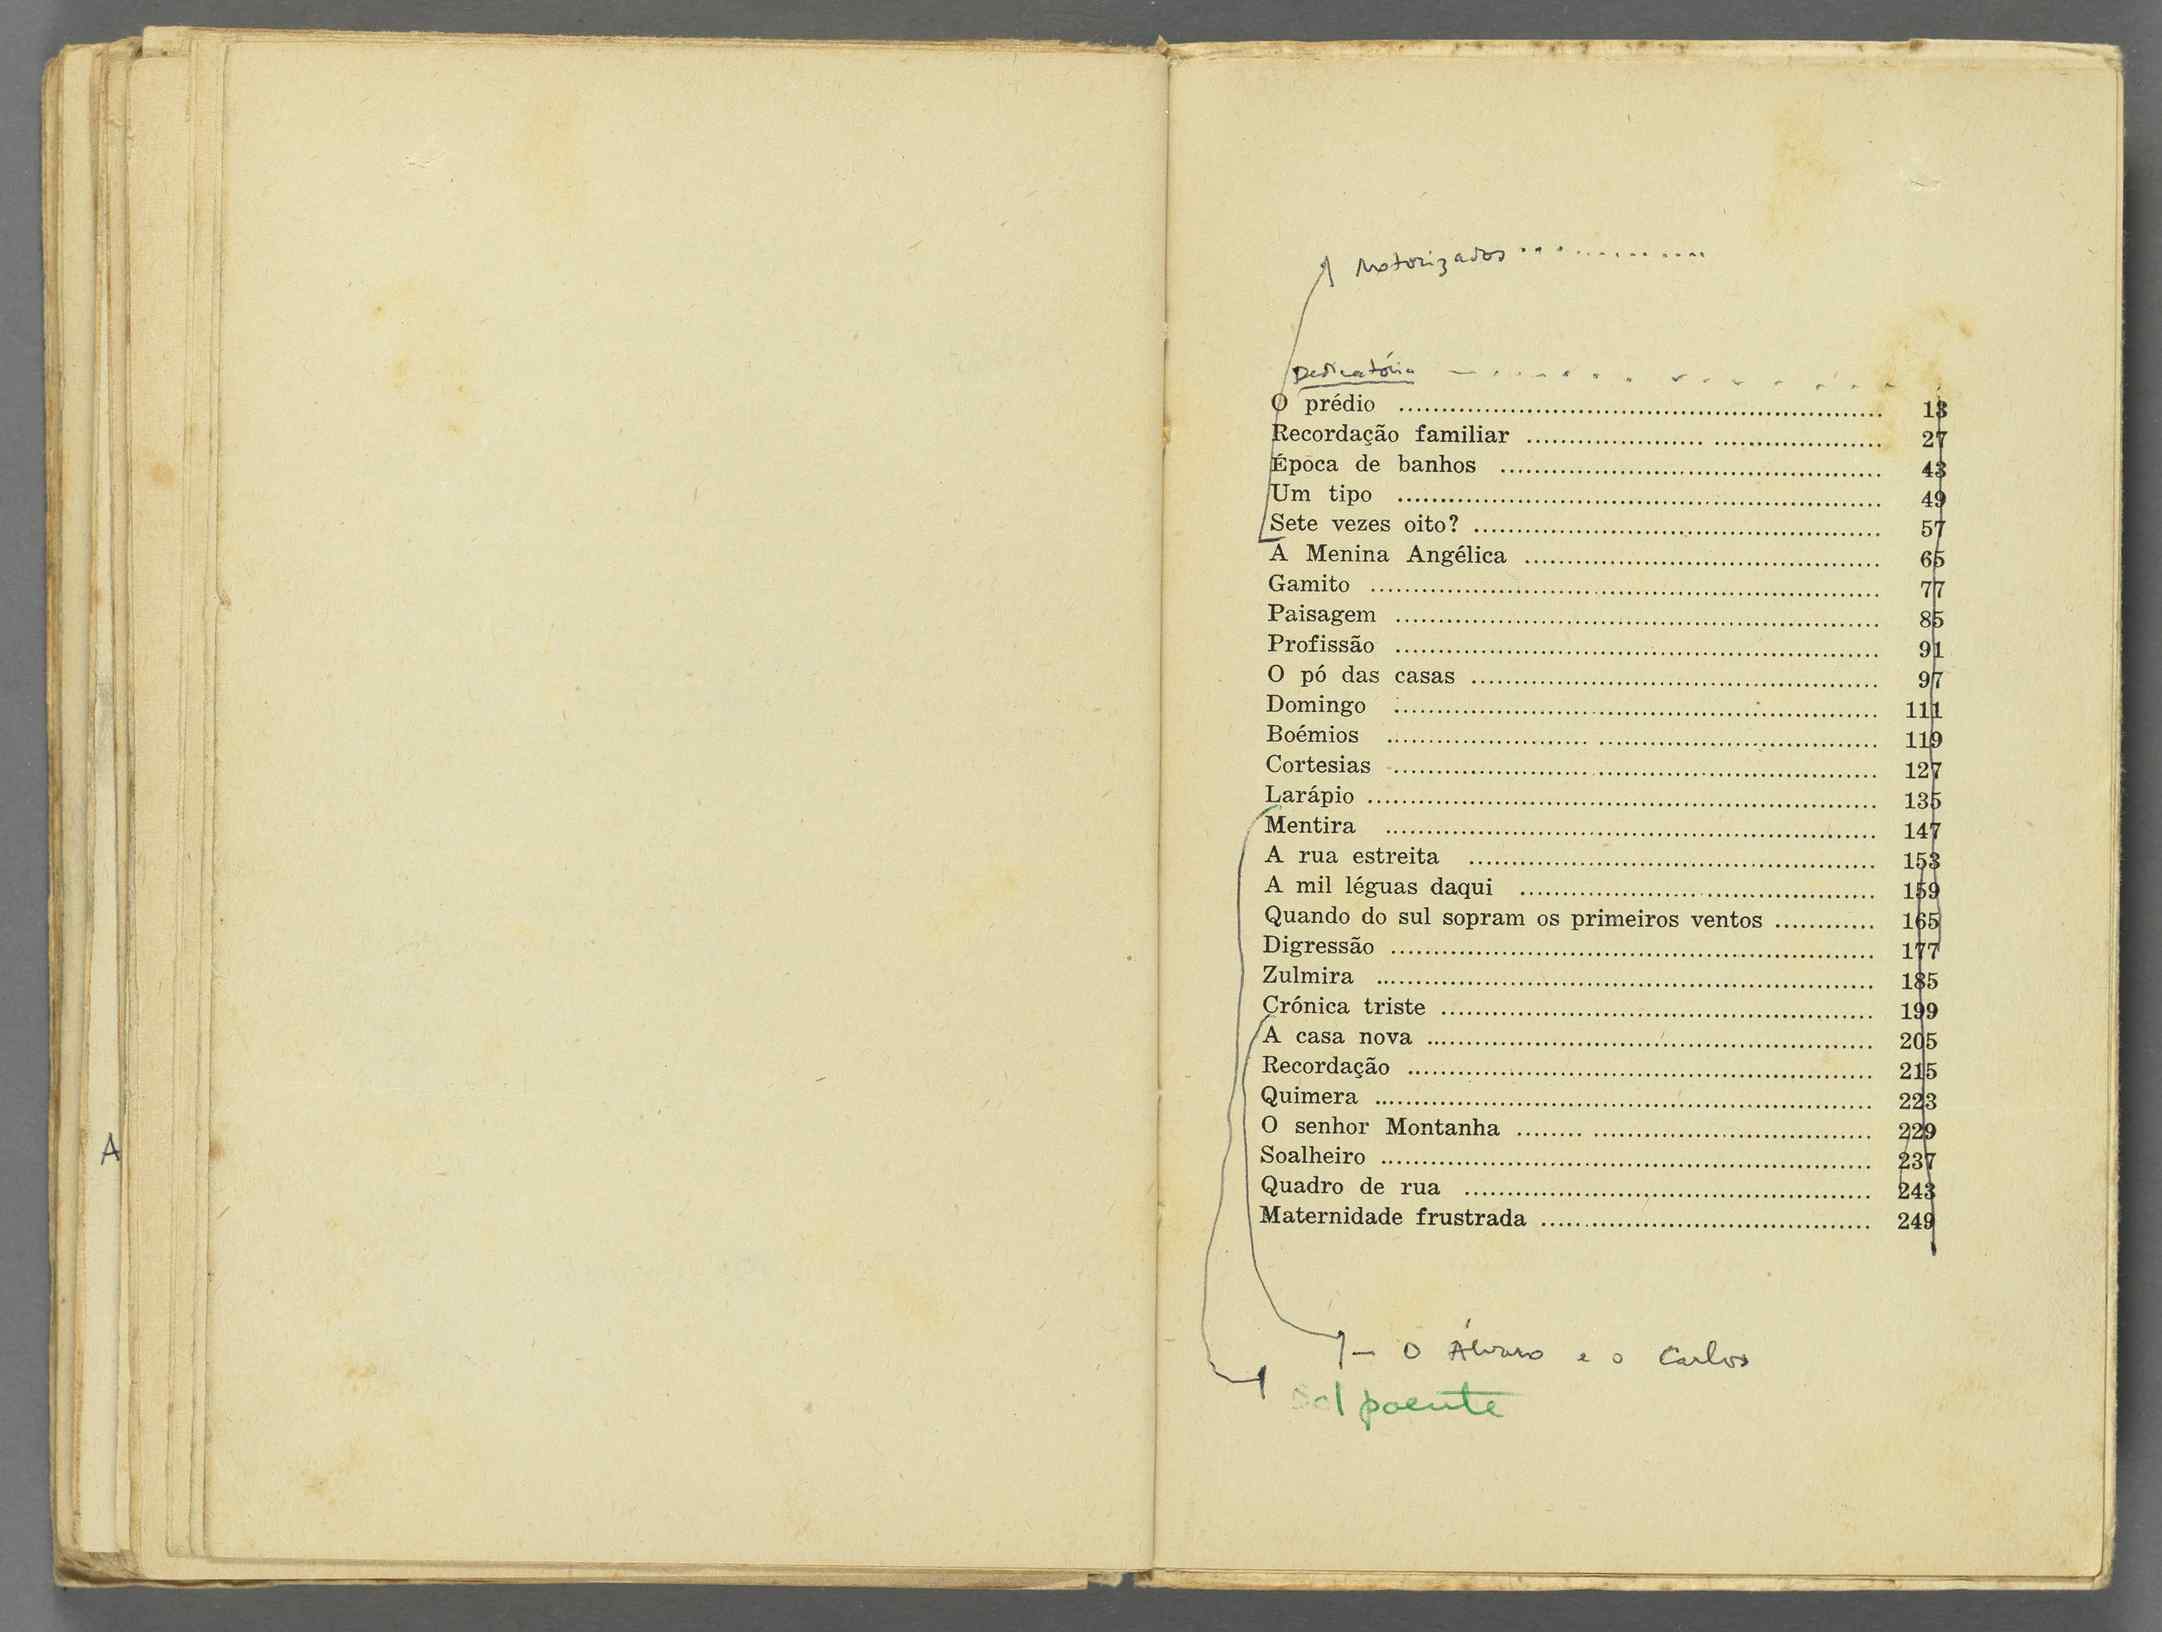 A
Motorizados ...............
Dedicatória — . . . . . . . . . . . . . .
O prédio .......................................................... 13
Recordação familiar .......................................... 27
Época de banhos .............................................. 43
Um tipo .......................................................... 49
Sete vezes oito? ................................................ 57
A Menina Angélica .......................................... 65
Gamito ............................................................ 77
Paisagem ......................................................... 85
Profissão ......................................................... 91
O pó das casas ................................................ 97
Domingo ......................................................... 111
Boémios .......................................................... 119
Cortesias ......................................................... 127
Larápio ............................................................ 135
Mentira .......................................................... 147
A rua estreita ................................................ 153
A mil léguas daqui .......................................... 159
Quando do sul sopram os primeiros ventos ............ 165
Digressão ......................................................... 177
Zulmira ........................................................... 185
Crónica triste ................................................... 199
A casa nova ..................................................... 205
Recordação ....................................................... 215
Quimera ........................................................... 223
O senhor Montanha .......................................... 229
Soalheiro .......................................................... 237
Quadro de rua ................................................ 243
Maternidade frustrada ....................................... 249
— O Álvaro e o Carlos
Sol poente